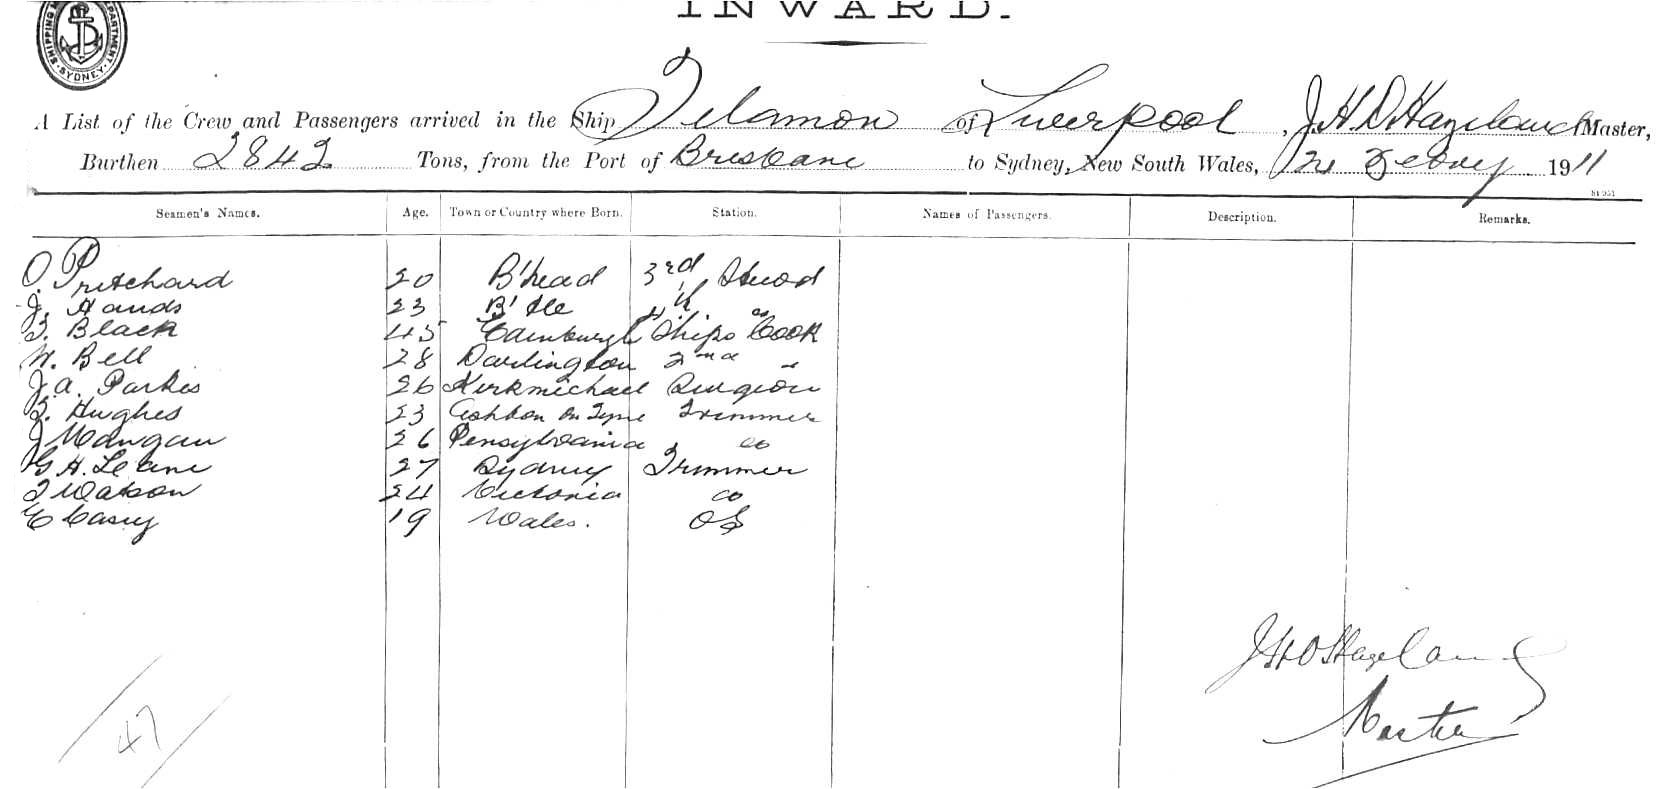 INWARD.
SHIPPING DEPARTMENT SYDNEY
A List of the Crew and Passengers arrived in the Ship Telamon of Liverpool, J. H. D. Hazeland Master,
Burthen 2842 Tons, from the Port of Brisbane to Sydney, New South Wales, 1911
Seamen's Names. Age. Town or Country where Born. Station. Names of Passengers. Description. Remarks.
O. Pritchard 20 B'head 3rd Stwod
J. Hands 23 4
T. Black 45 Edinburgh Ships Cook
W. Bell 28 Darlington 2nd "
J. A. Parkes 26 Kirkmichael Surgeon
T. Hughes 23 Ashton on Tyne Trimmer
J Mangan 26 Pensylvania do
G. H. Leane 27 Sydney Trimmer
T Watson 24 Victoria do
E Casey 19 Wales. OS
J H D Hazeland
Master
47